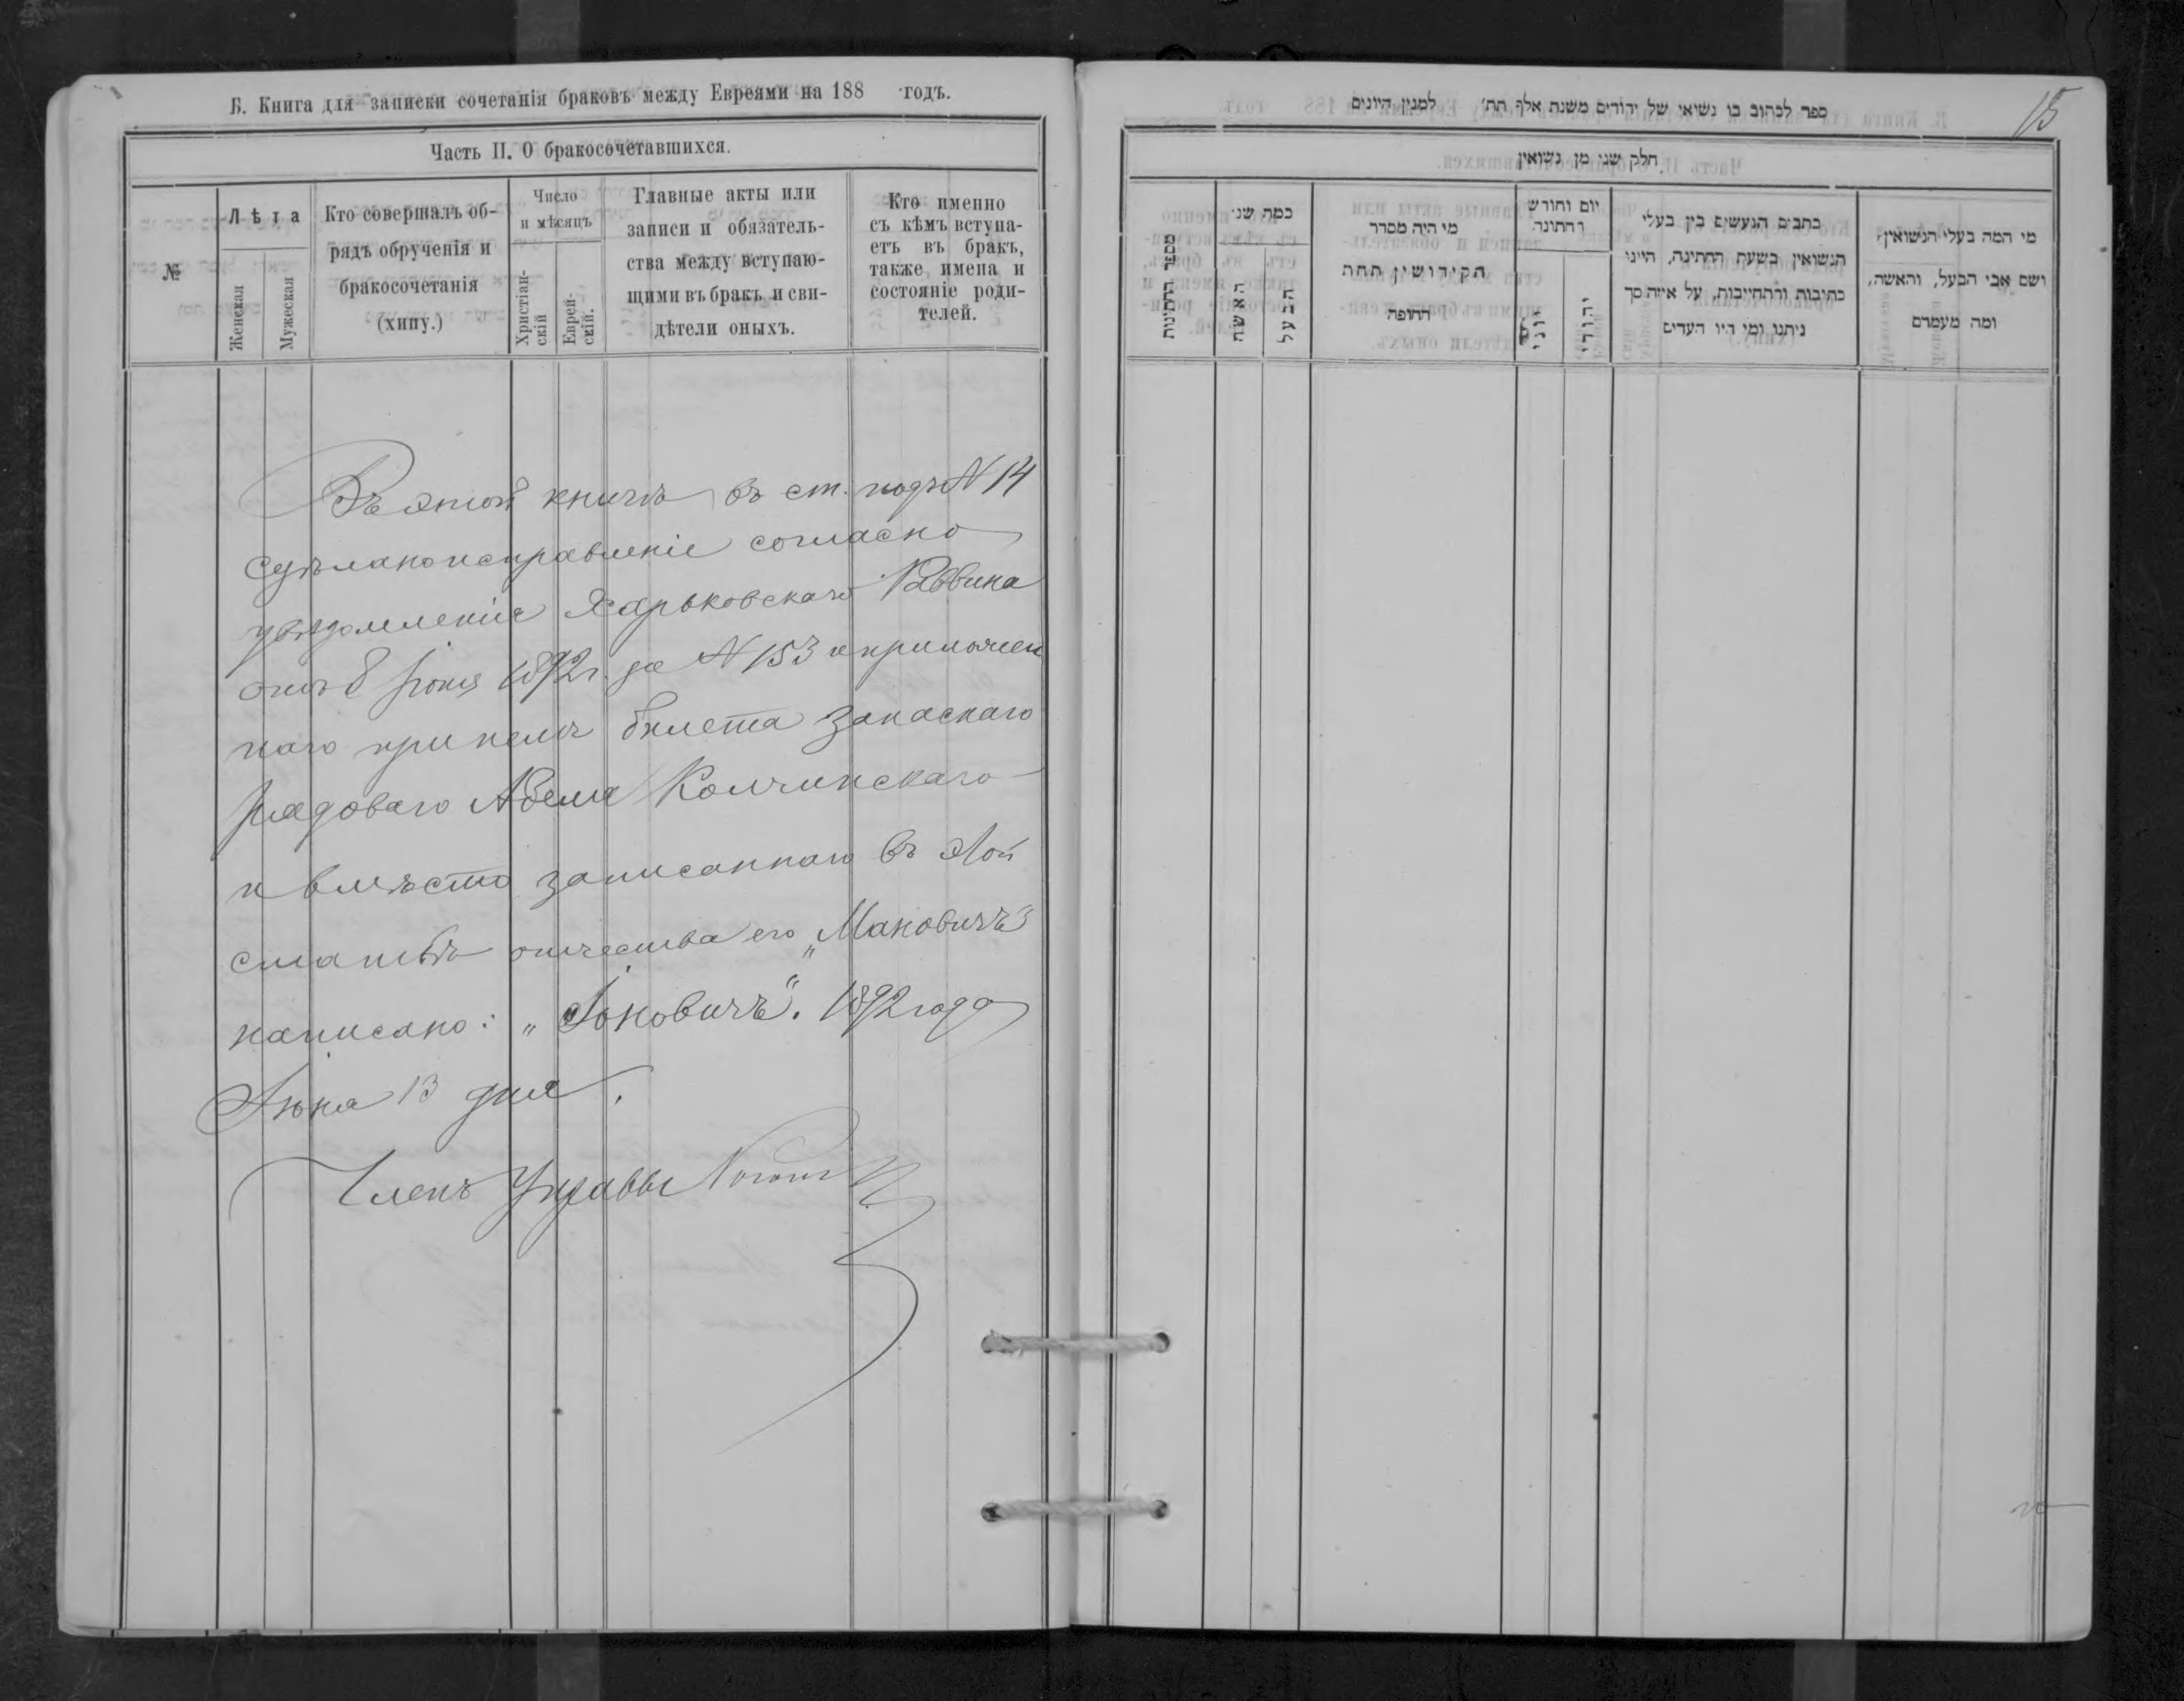 Б. Книга для записки сочетанія браковъ между Евреями на 188 годъ.
Часть II. О бракосочетавшихся.
№
Лѣта
Женская
Мужеская
Кто совершалъ об-
рядъ обрученія и
бракосочетанія
(хипу.)
Число
и мѣсяцъ
Христіан-
скій
Еврей-
скій.
Главные акты или
записи и обязатель-
ства между вступаю-
щими въ бракъ и сви-
дѣтели оныхъ.
Кто именно
съ кѣмъ вступа-
етъ въ бракъ,
также имена и
состояніе роди-
телей.
Въ этой книгѣ въ ст. подъ N 14
сдѣлано исправленіе согласно
увѣдомленія Харьковскаго Раввина
отъ 8 Іюня 1892 г. за N 153 и приложен
наго при немъ билета запаснаго
рядоваго Абеля Колчинскаго
и вмѣсто записаннаго въ этой
статьѣ отчества его „Маковичъ“
написано: „Іоковичъ“. 1892 года
Іюня 13 дня.
Членъ Управы
15
ספר לכתוב בו נשואי של יהודים משנת אלף תת' למנין היונים
חלק שני מן נשואין
מספר החתונות
כמה שני
האשה
הבעל
מי היה מסדר
הקידושין תחת
החופה
יום וחודש
החתונה
יוני
יהודי
כתבים הנעשים בין בעלי
הנשואין בשעת החתונה, היינו
כתובות והתחייבות, על איזה סך
ניתנו ומי היו העדים
מי המה בעלי הנשואין,
ושם אבי הבעל, והאשה,
ומה מעמדם